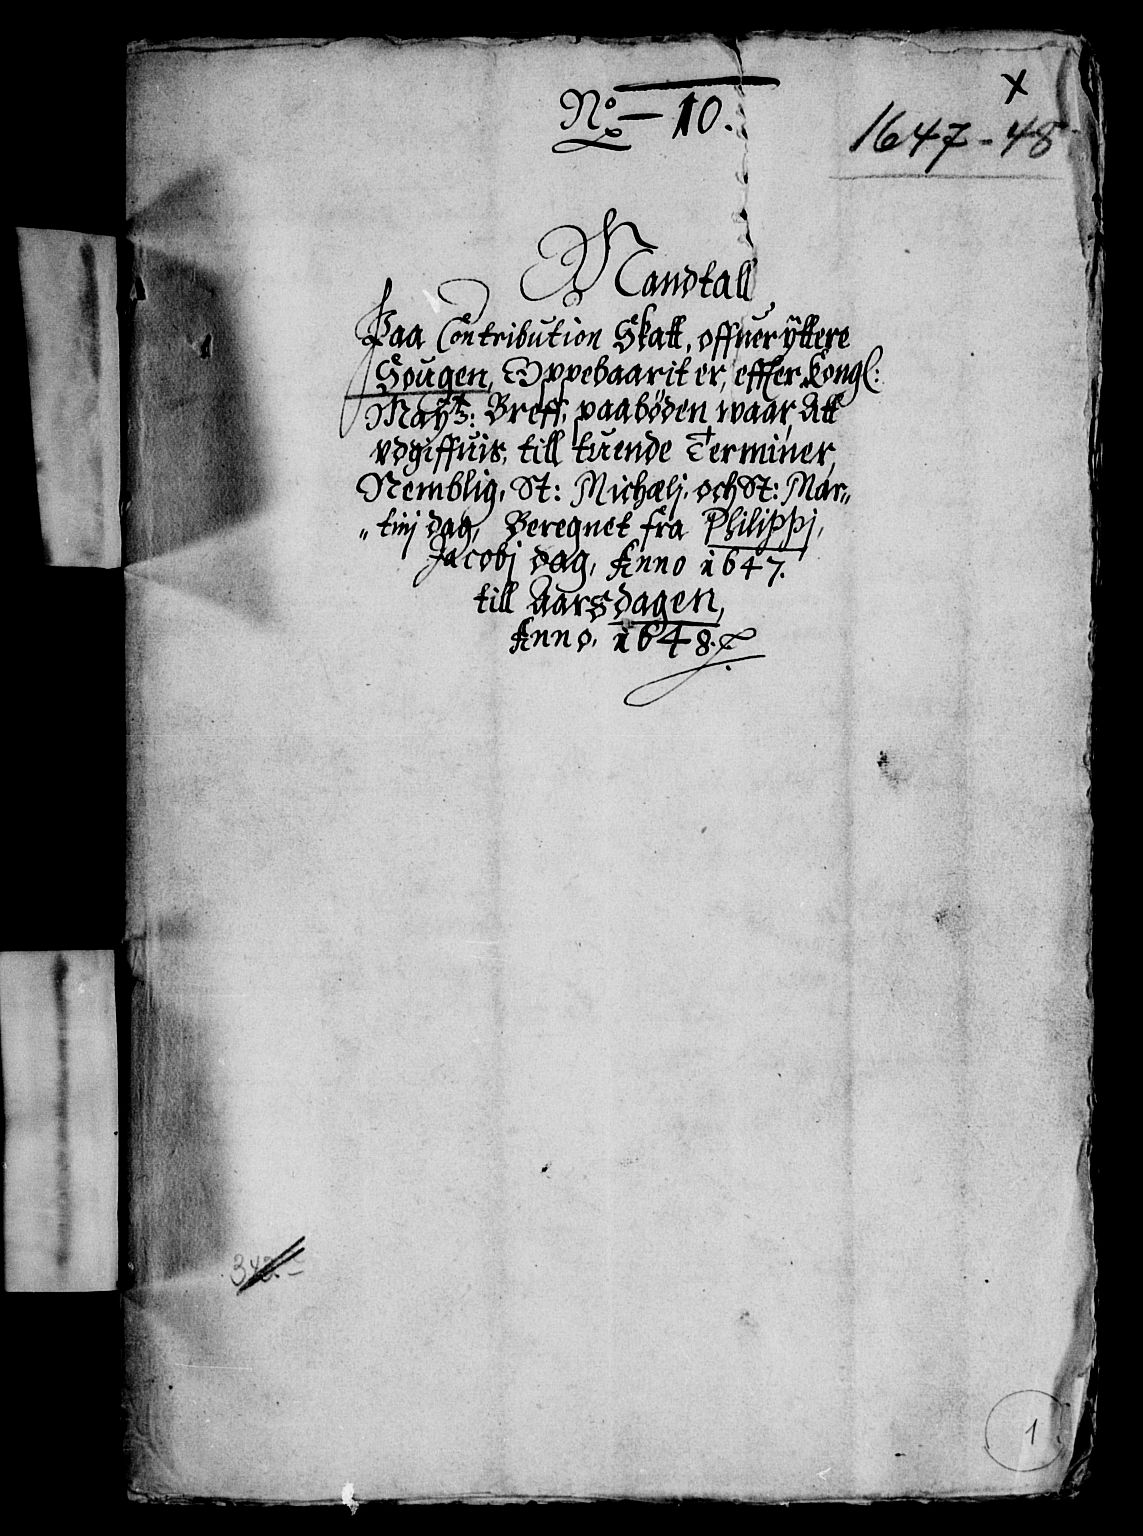 No – 10.
x
1647-48
Mandtall
Paa Contribution Skatt, offuer ÿttere
Sougen, Oppebaarit er, effter Kongl:
Maÿtz: Breff, paabøden waar, Att
vdgiffuis, till tuende Terminer,
Nemblig, St: Michælj, och St: Mar„
„tinj dag, Beregnet fra Philippj,
Jacobj dag, Anno 1647.
till Aarsdagen,
Anno. 1648.
342.–
1